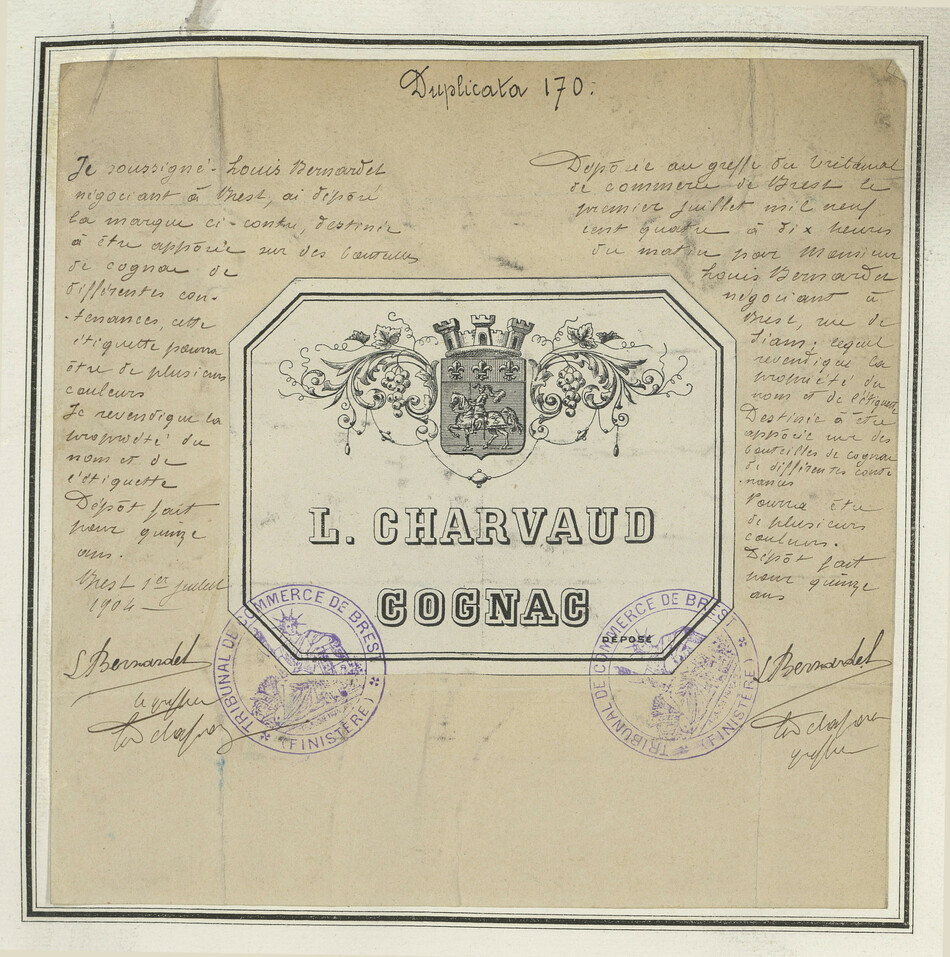 Duplicata 170.
Je soussigné Louis Bernardet
négociant à Brest, ai déposé
la marque ci-contre, destinée
à être apposée sur des bouteilles
de cognac de
différentes con-
-tenances, cette
étiquette pourra
être de plusieurs
couleurs
Je revendique la
propriété du
nom et de
l'étiquette
Dépôt fait
pour quinze
ans.
Brest 1er juillet
1904
L Bernardet
Le greffier
Déposée au greffe du tribunal
de commerce de Brest le
premier juillet mil neuf
cent quatre à dix heures
du matin par Monsieur
Louis Bernardet
négociant à
Brest, rue de
Siam; lequel
revendique la
propriété du
nom et de l'étiquette
Destinée à être
apposée sur des
bouteilles de cognac
de différentes conte
-nances
Pourra être
de plusieurs
couleurs.
Dépôt fait
pour quinze
ans
L Bernardet
greffier
L. CHARVAUD
COGNAC
DÉPOSÉ
TRIBUNAL DE COMMERCE DE BREST
(FINISTÈRE)
TRIBUNAL DE COMMERCE DE BREST
(FINISTÈRE)